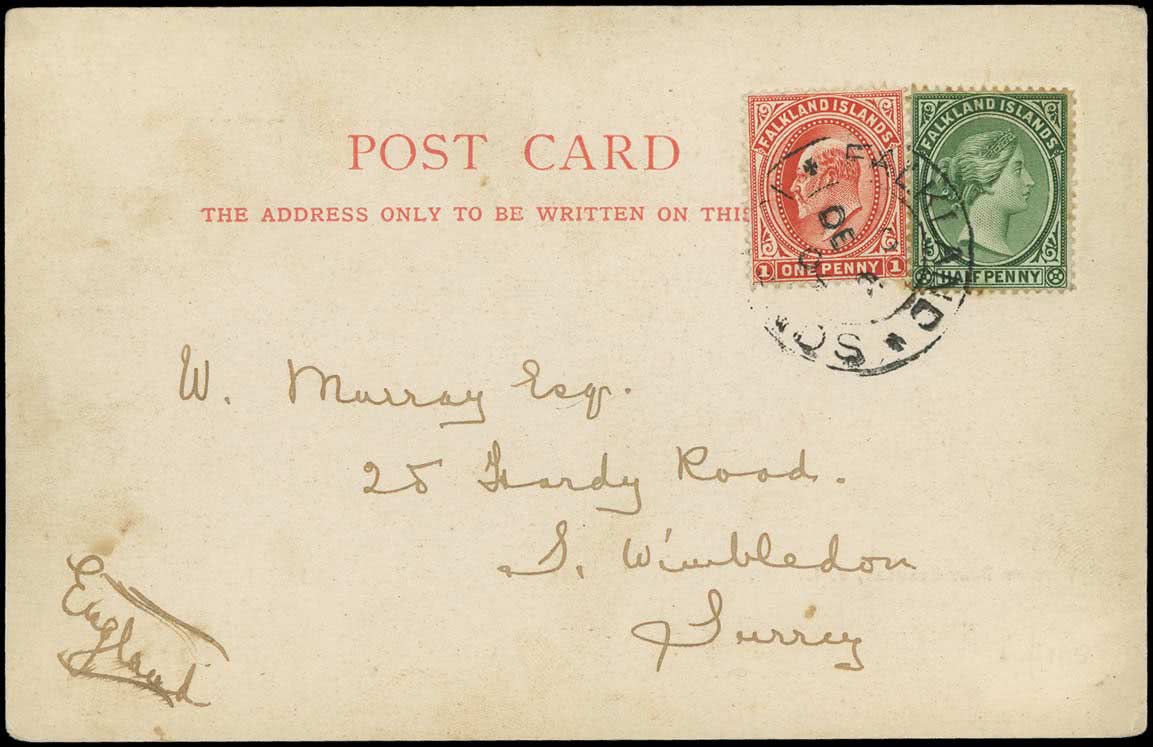 FALKLAND ISLANDS
1 ONE PENNY 1
FALKLAND ISLANDS
HALFPENNY
FALKLAND
DE
POST CARD
THE ADDRESS ONLY TO BE WRITTEN ON THIS
W. Murray Esq.
25 Hardy Road.
S. Wimbledon
Surrey
England